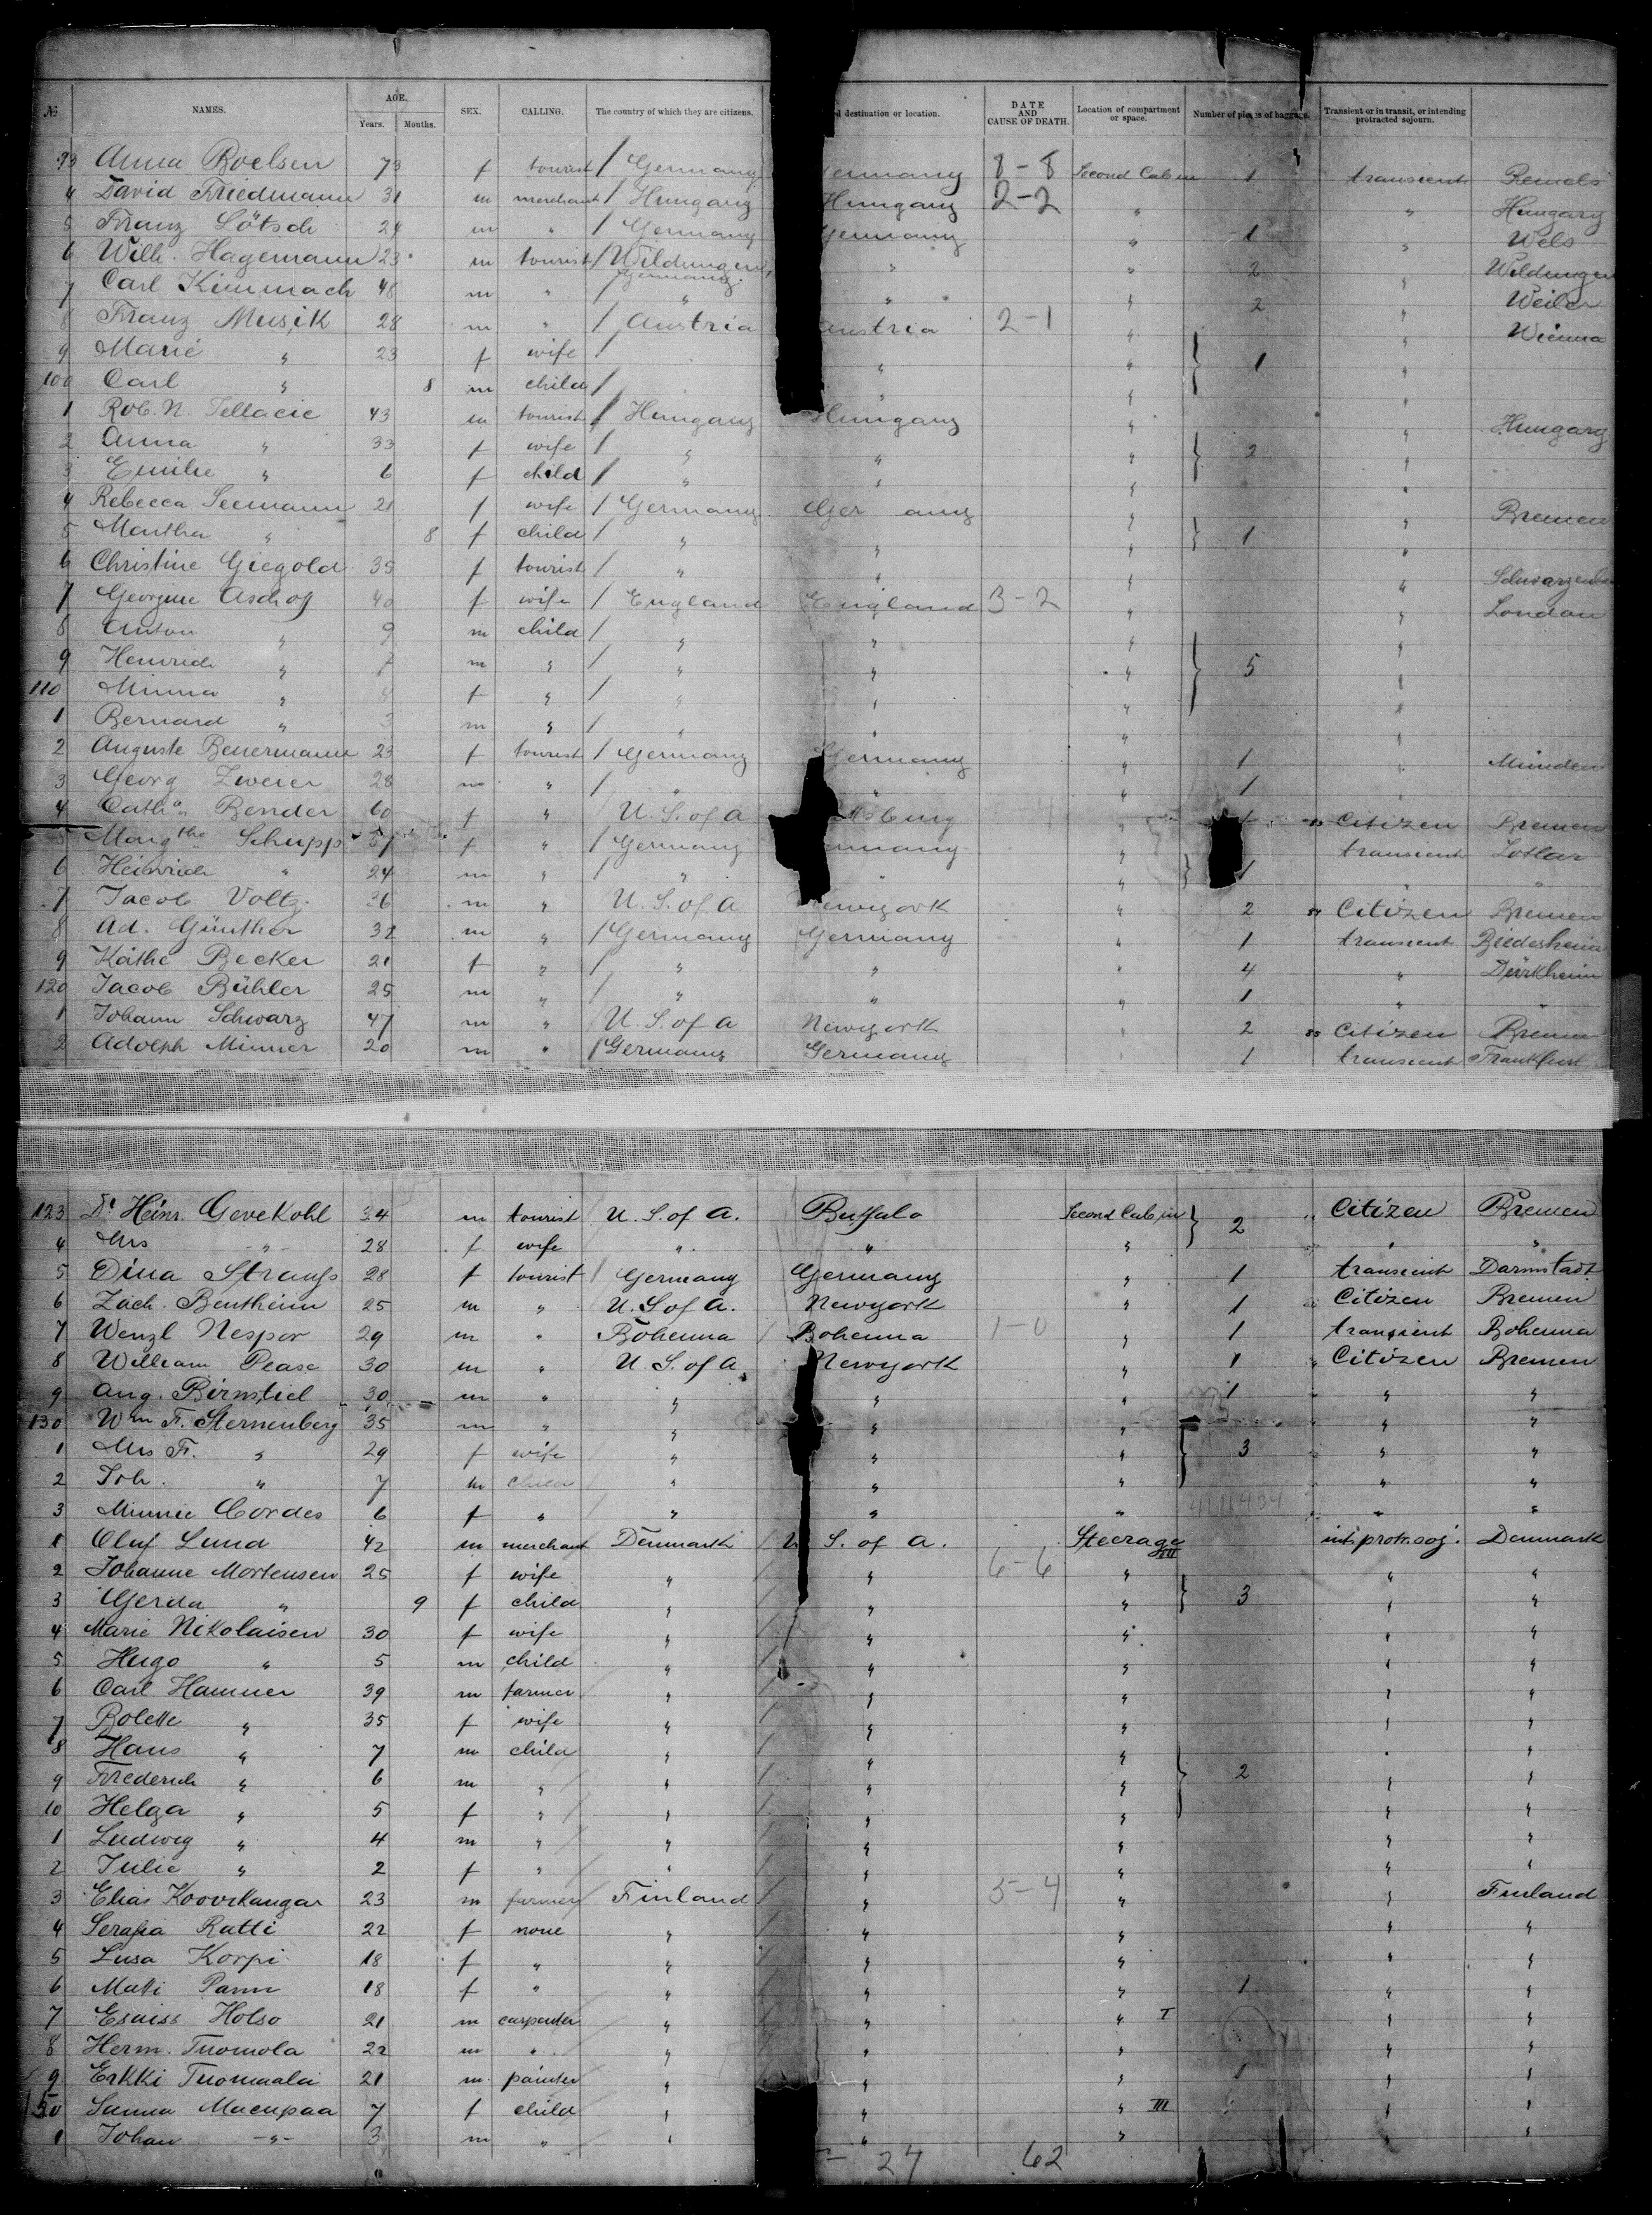 № NAMES. AGE. Years. Months. SEX. CALLING. The country of which they are citizens. d destination or location. DATE AND CAUSE OF DEATH. Location of compartment or space. Number of pieces of baggage. Transient or in transit, or intending protracted sojourn.
93 Anna Boelsen 73 f tourist / Germany ermany 8-8 Second Cabin 1 transient Remels
4 David Friedmann 31 m merchant / Hungary Hungary 2-2 " " Hungary
5 Franz Lötsch 24 m " / Germany Germany " 1 " Wels
6 Wilh. Hagemann 23 m tourist / Wildungen, Germany. " " 2 " Wildungen
7 Carl Kimmach 48 m " / " " " 2 " Weiler
8 Franz Musik 28 m " / Austria Austria 2-1 " " Wienna
9 Marie " 23 f wife / " " 1 "
100 Carl " 8 m child / " " "
1 Rob. N. Tellacic 43 m tourist / Hungary Hungary " " Hungary
2 Anna " 33 f wife / " " " 2 "
3 Emilie " 6 f child / " " " "
4 Rebecca Seemann 21 f wife / Germany Ger any " " Bremen
5 Martha " 8 f child / " " " 1 "
6 Christine Giegold 35 f tourist / " " " "
7 Georgine Aschof 40 f wife / England England 3-2 " " London
8 Anton " 9 m child / " " " "
9 Heinrich " 7 m " / " " " 5 "
110 Minna " 4 f " / " " " "
1 Bernard " 3 m " / " " " "
2 Auguste Beuermann 23 f tourist / Germany Germany " 1 " Münden
3 Georg Zweier 28 m " / " " " 1 "
4 Catha Bender 60 f " U. S. of A sburg " 1 Citizen Bremen
5 Margthe Schupp 57 f " / Germany rmany " transient Lollar
6 Heinrich " 24 m " / " " " 1 " "
7 Jacob Voltz 36 m " U. S. of A Newyork " 2 Citizen Bremen
8 Ad. Günther 32 m " / Germany Germany " 1 transient Biedesheim
9 Käthe Becker 21 f " / " " " 4 " Dürkheim
120 Jacob Bühler 25 m " / " " " 1 " "
1 Johann Schwarz 47 m " U. S. of A Newyork " 2 Citizen Bremen
2 Adolph Minner 20 m " / Germany Germany 1 transient Frankfurt
123 Dr Heinr. Gevekohl 34 m tourist U. S. of A. Buffalo Second Cabin 2 Citizen Bremen
4 Mrs " 28 f wife " " " " "
5 Dina Strauss 28 f tourist / Germany Germany " 1 transient Darmstadt
6 Zach. Bentheim 25 m " U. S of A. Newyork " 1 Citizen Bremen
7 Wenzl Nespor 29 m " Bohemia / Bohemia 1-0 " 1 transient Bohemia
8 William Pease 30 m " U. S. of A. Newyork " 1 Citizen Bremen
9 Aug. Birnstiel 30 m " " " " 1 " "
130 Wm F. Sternenberg 35 m " " " " " "
1 Mrs F. " 29 f wife " " " 3 " "
2 Joh. " 7 m child " " " " "
3 Minnie Cordes 6 f " " " " " "
1 Oluf Lund 42 m merchant Denmark / U. S. of A. Steerage III int. protr. soj. Denmark
2 Johanne Mortensen 25 f wife " " 6-6 " " "
3 Gerda " 9 f child " " " 3 " "
4 Marie Nikolaisen 30 f wife " " " " "
5 Hugo " 5 m child " " " " "
6 Carl Hammer 39 m farmer " " " " "
7 Bolette " 35 f wife " " " " "
8 Hans " 7 m child " " " " "
9 Frederich " 6 m " " " " 2 " "
10 Helga " 5 f " " " " " "
1 Ludwig " 4 m " " " " " "
2 Julie " 2 f " " " " " "
3 Elias 23 m farmer Finland " 5-4 " " Finland
4 Serafia Ratti 22 f none " " " " "
5 Lusa Korpi 18 f " " " " " "
6 Matti Pann 18 f " " " " 1 " "
7 Esaiss Holso 21 m carpenter " " " I " "
8 Herm. Tuomola 22 m " " " " " "
9 Erkki Tuomaala 21 m painter " " " 1 " "
150 Sanna Macupaa 7 f child " " " III " "
1 Johan " 3 m " " " " " "
27 62